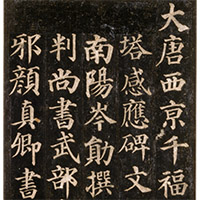 大唐西亰千福
塔感應碑文
南陽岑勛撰
判尚書武部
邪顏真卿書